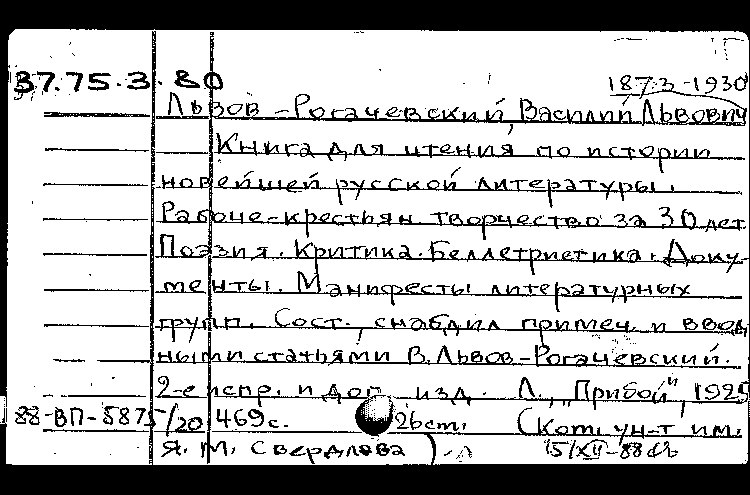 37.75.3.80
1873-1930
Львов-Рогачевский, Василий Львович
Книга для чтения по истории
новейшей русской литературы.
Рабоче-крестьян творчество за 30 лет
Поэзия. Критика. Беллетристика. Доку-
менты. Манифесты литературных
групп. Сост., снабдил примеч. и ввод
ными статьями В. Львов-Рогачевский.
2-е испр. и доп. изд. Л., "Прибой", 1925
88-ВП-5875/20 469 с. 26 cm. (Кот. ун-т им.
Я. М. Свердлова)
15/XII-88